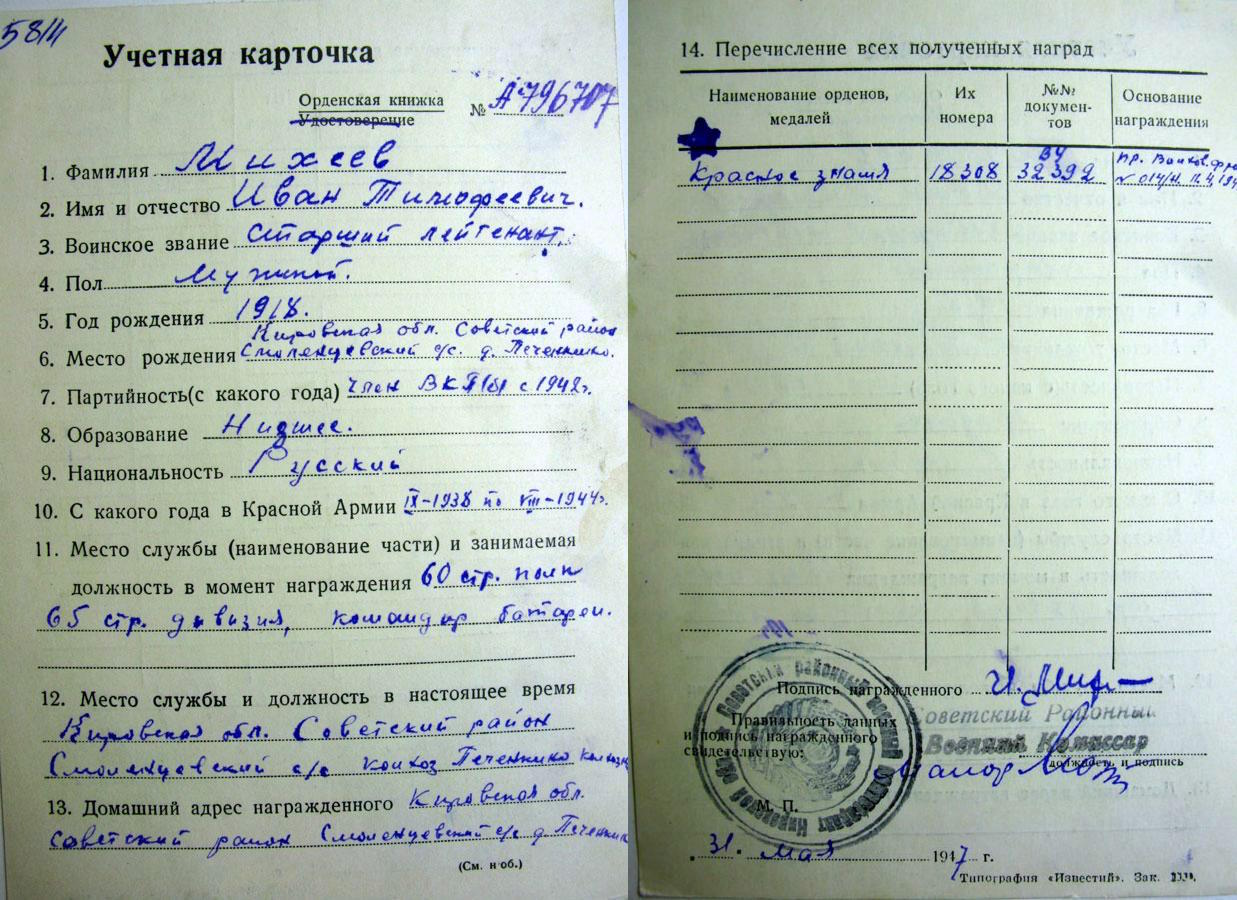 5814
Учетная карточка
Орденская книжка
Удостоверение
№ А796707
1. Фамилия Михеев
2. Имя и отчество Иван Тимофеевич.
3. Воинское звание Старший лейтенант.
4. Пол Мужской.
5. Год рождения 1918.
Кировская обл. Советский район
6. Место рождения Смоленцевский с/с. д. Печенкино.
7. Партийность(с какого года) член ВКП(б) с 1942г.
8. Образование Низшее.
9. Национальность Русский
10. С какого года в Красной Армии IX-1938 по VIII-1944г.
11. Место службы (наименование части) и занимаемая
должность в момент награждения 60 стр. полк
65 стр. дивизия, командир батареи.
12. Место службы и должность в настоящее время
Кировская обл. Советский район
Смоленцевский с/с колхоз Печенкино
13. Домашний адрес награжденного Кировская обл.
Советский район Смоленцевский с/с д. Печенкин
(См. н об.)
14. Перечисление всех полученных наград
Наименование орденов, медалей
Их номера
№№ документов
Основание награждения
Красное знамя 18308 32392 пр.
Подпись награжденного И. Мих
Правильность данных
и подпись награжденного
свидетельствую:
Советский Районный
Военный Комиссар
майор
должность и подпись
М. П.
31. мая 1947 г.
Типография «Известий». Зак.